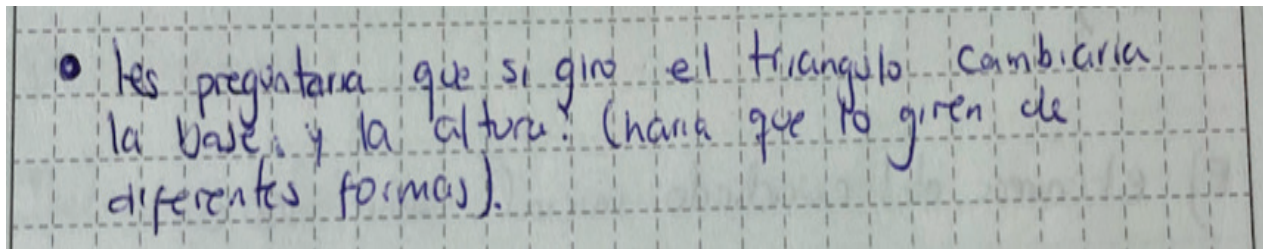 • les preguntaria que si giro el triangulo cambiaria
la base y la altura? (haria que lo giren de
diferentes formas).